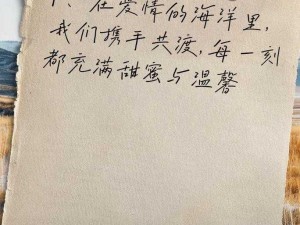 1、在爱情的海洋里,
我们携手共渡,每一刻
都充满甜蜜与温馨